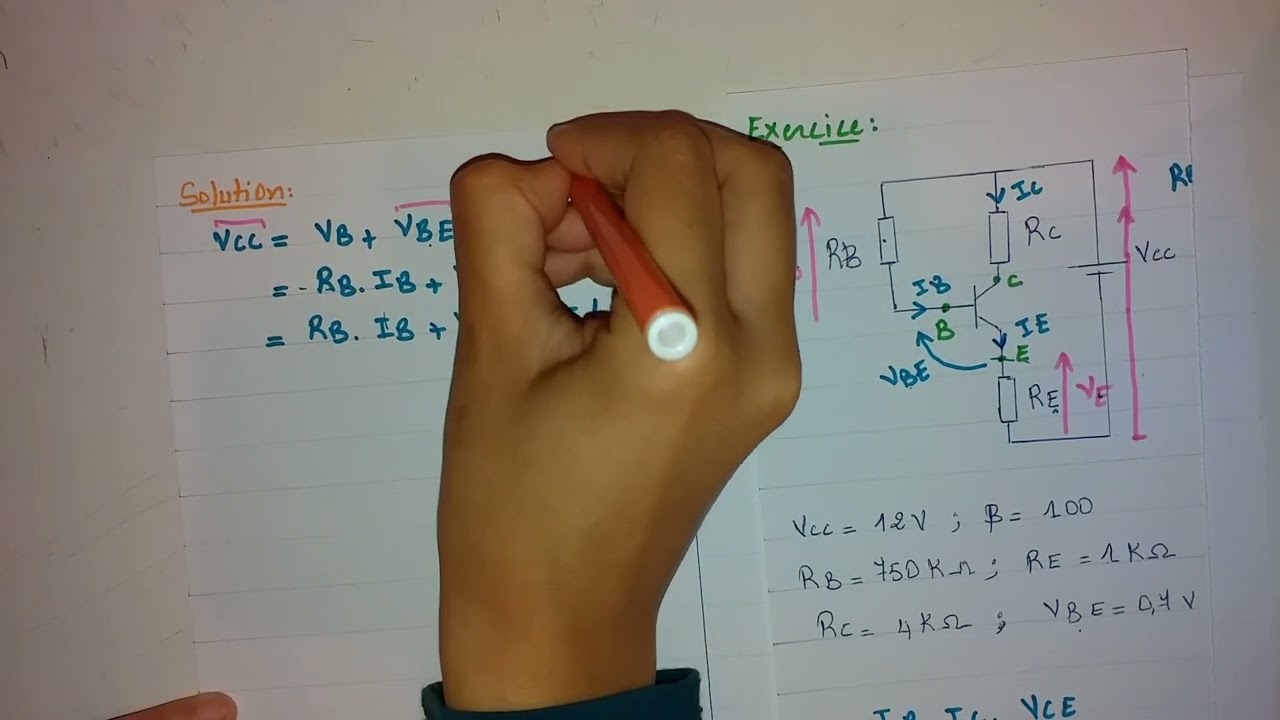 Solution:
VCC = VB + VBE
= - RB. IB +
= RB. IB +
Exercice:
IC
RB
RC
VCC
IB
C
B
IE
E
VBE
RE
VE
VCC = 12V ; β = 100
RB = 750 KΩ ; RE = 1 KΩ
RC = 4 KΩ ; VBE = 0,7 V
IC, VCE